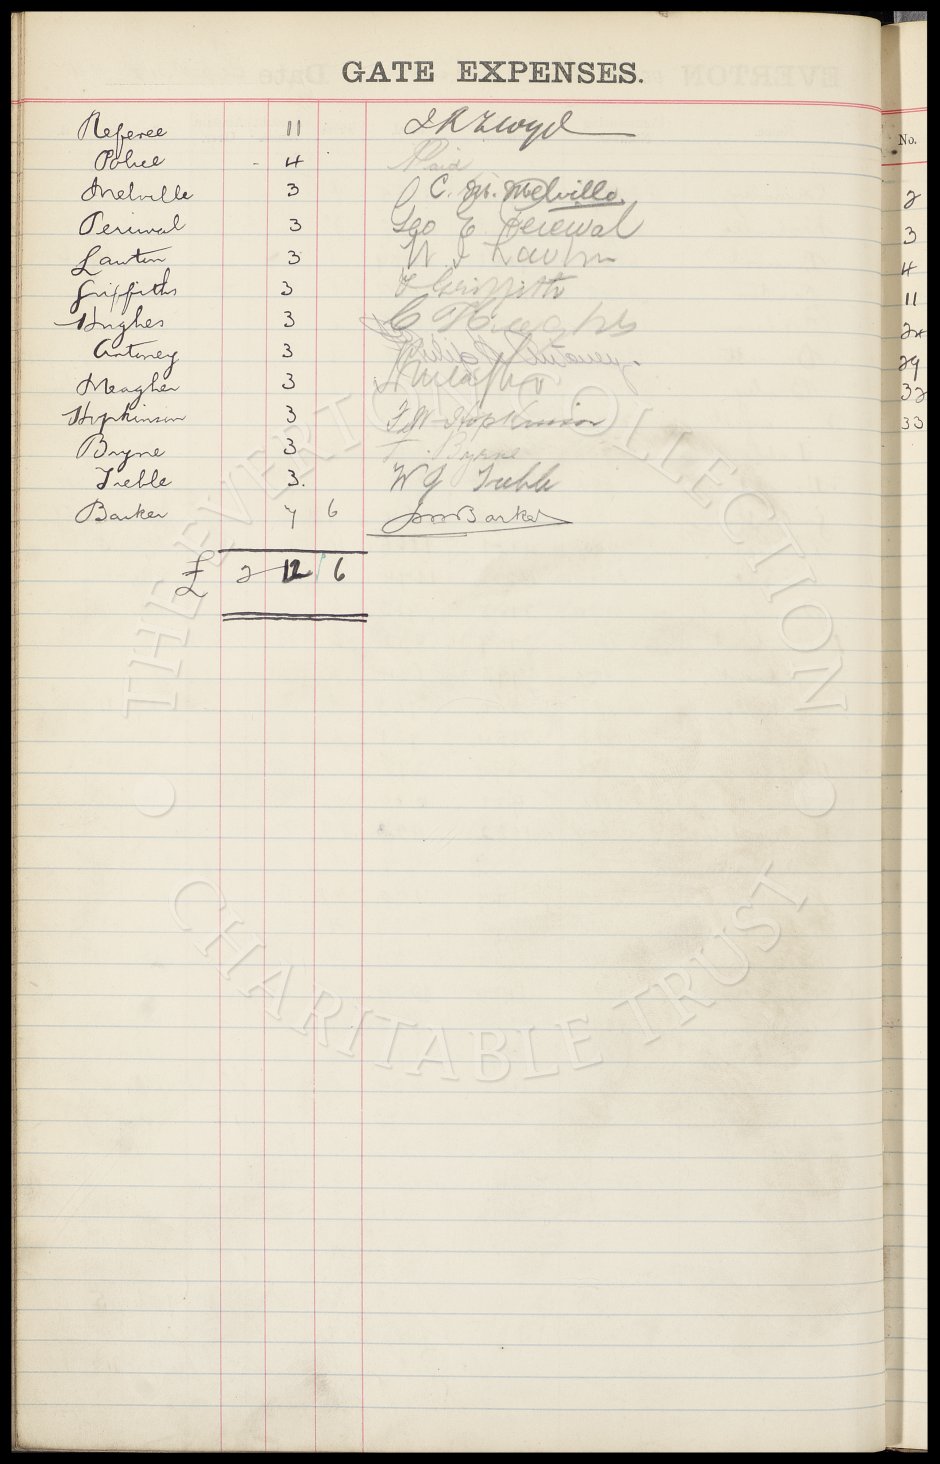 GATE EXPENSES.
Referee 11
Police - 4 Paid
Melville 3 C. M. Melville
Percival 3 Geo E Percival
Lawton 3 Lawton
Griffiths 3 Griffiths
Hughes 3 C Hughes
Antoney 3 Philip Antoney
Meagher 3
Hopkinson 3 F W Hopkinson
Byrne 3 Byrne
Treble 3. W G Treble
Barker 7 6 Barker
£ 2 12 6
No.
2
3
4
11
29
32
33
THE EVERTON COLLECTION
CHARITABLE TRUST